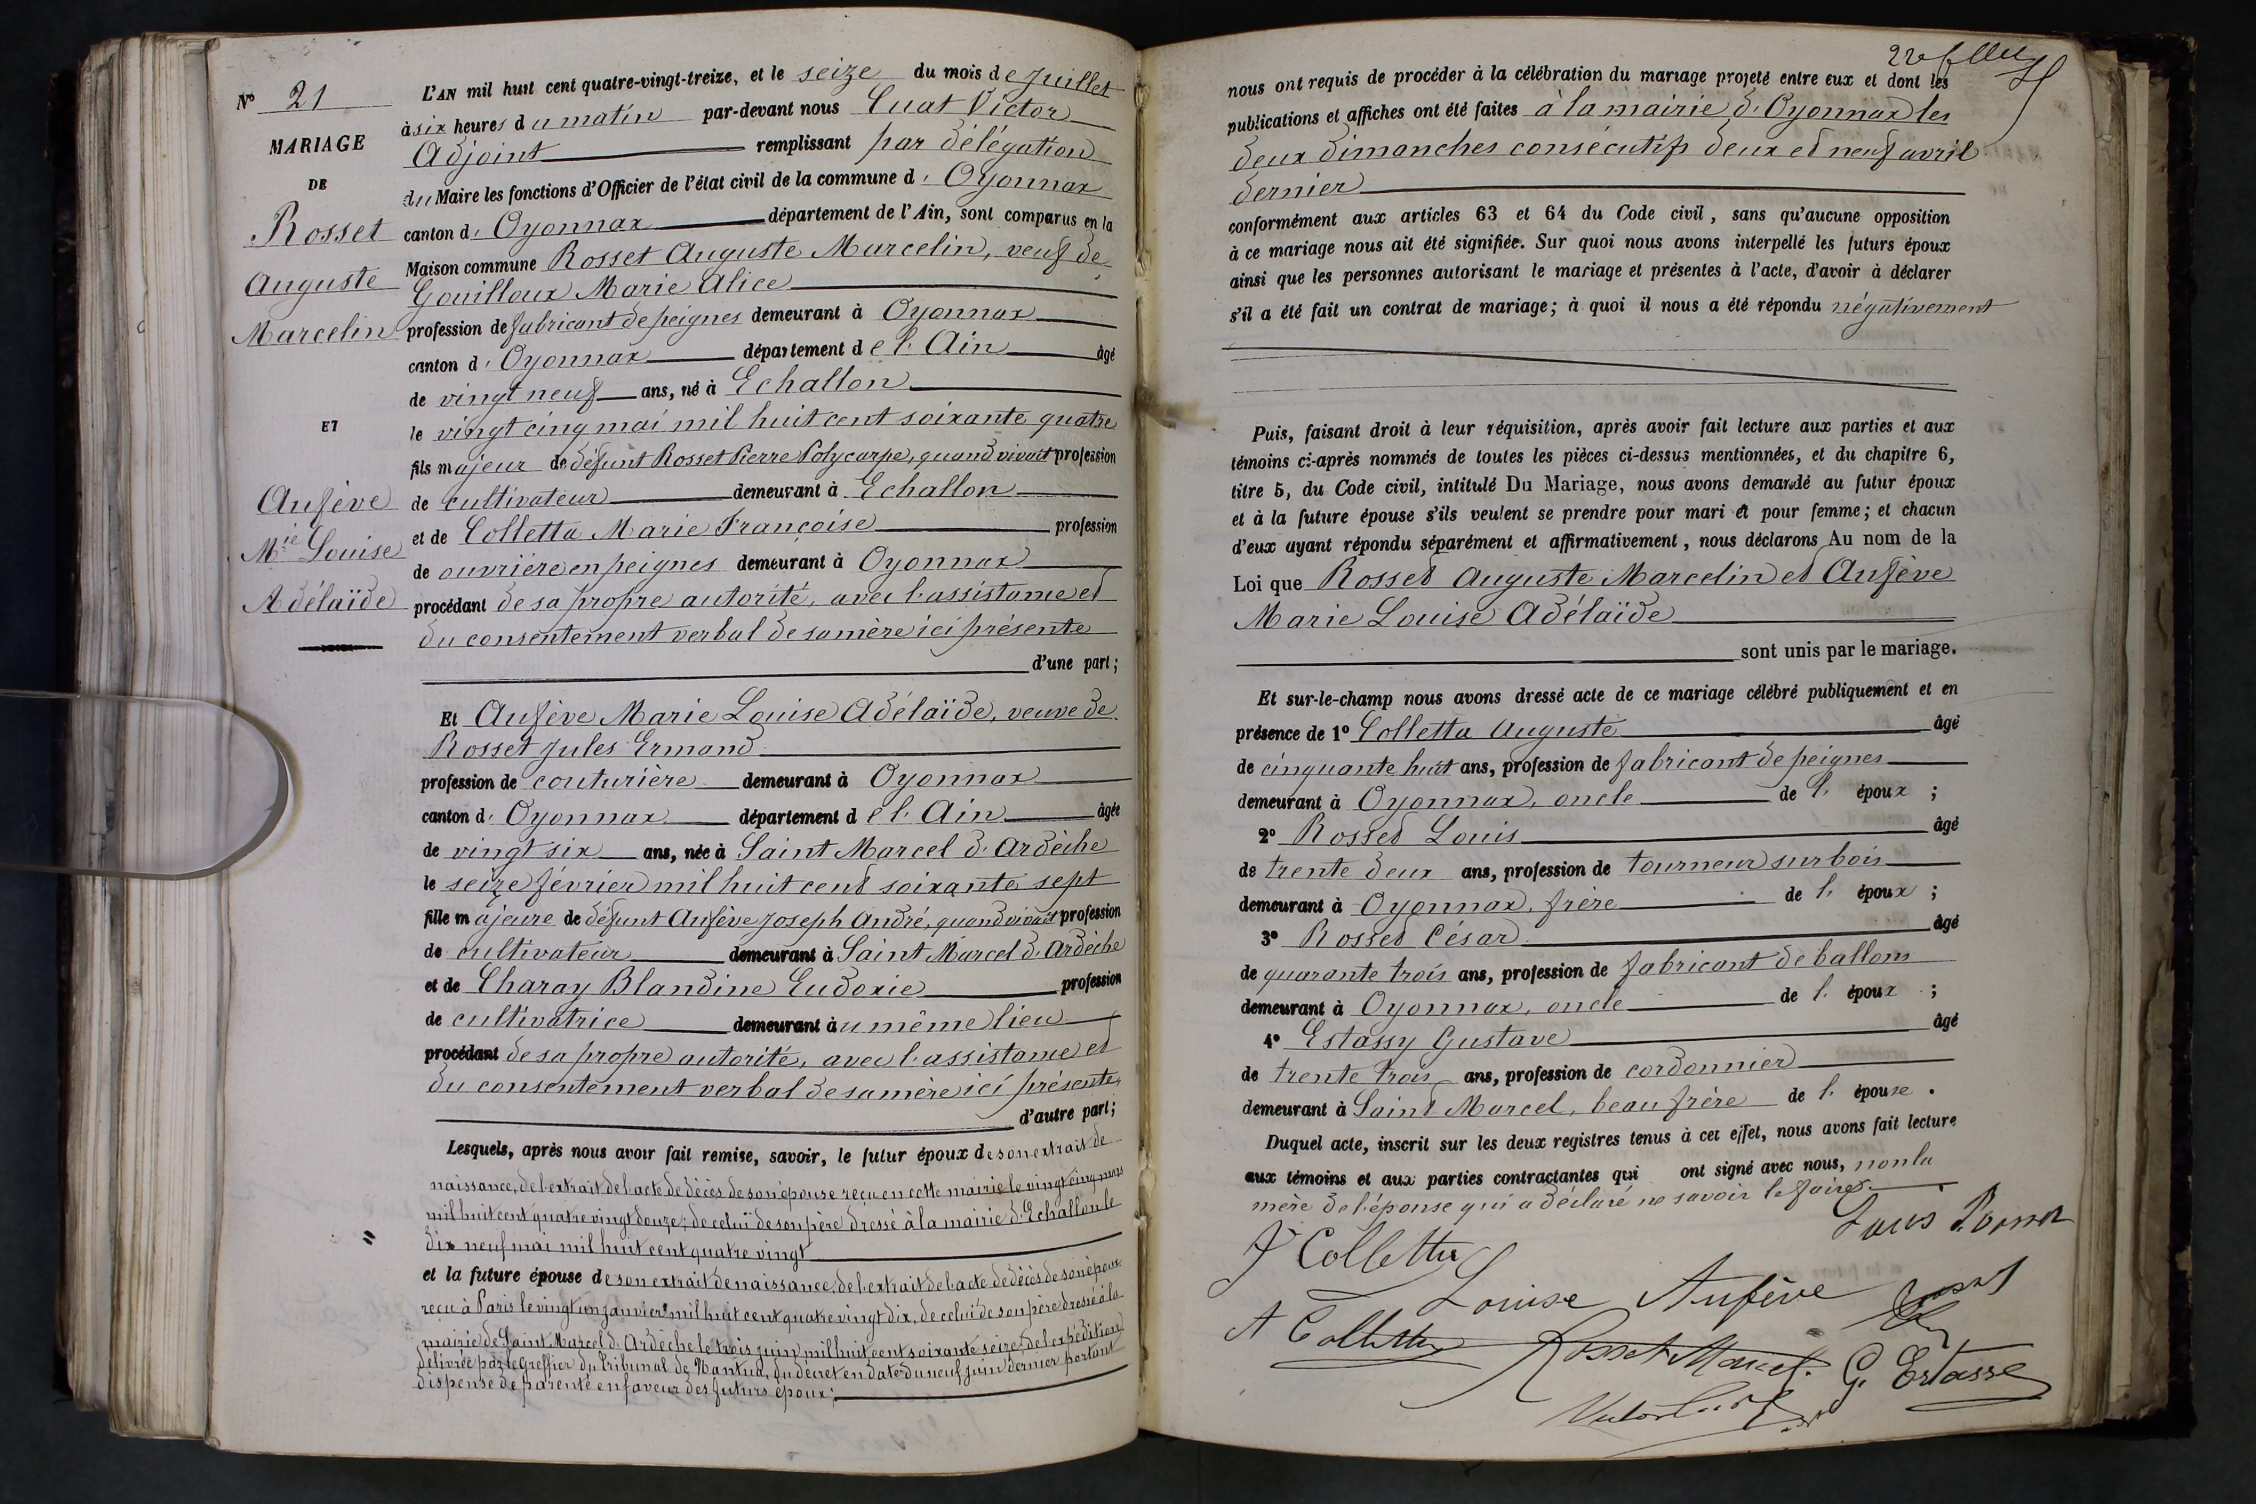 N° 21
MARIAGE
DE
Rosset
Auguste
Marcelin
ET
Aufève
Mie Louise
Adélaïde
L'AN mil huit cent quatre-vingt-treize, et le seize du mois de Juillet
à six heures du matin par-devant nous Cuat Victor
Adjoint remplissant par délégation
du Maire les fonctions d'Officier de l'état civil de la commune d'Oyonnax
canton d'Oyonnax département de l'Ain, sont comparus en la
Maison commune Rosset Auguste Marcelin, veuf de
Gouilloux Marie Alice
profession de fabricant de peignes demeurant à Oyonnax
canton d'Oyonnax département de l'Ain âgé
de vingt neuf ans, né à Echallon
le vingt cinq mai mil huit cent soixante quatre
fils majeur de défunt Rosset Pierre Polycarpe, quand vivait profession
de cultivateur demeurant à Echallon
et de Colletta Marie Françoise profession
de ouvrière en peignes demeurant à Oyonnax
procédant de sa propre autorité, avec l'assistance et
du consentement verbal de sa mère ici présente
d'une part;
Et Aufève Marie Louise Adélaïde, veuve de
Rosset Jules Ermand
profession de couturière demeurant à Oyonnax
canton d'Oyonnax département de l'Ain âgée
de vingt six ans, née à Saint Marcel d'Ardèche
le seize février mil huit cent soixante sept
fille majeure de défunt Aufève Joseph André, quand vivait profession
de cultivateur demeurant à Saint Marcel d'Ardèche
et de Charay Blandine Eudoxie profession
de cultivatrice demeurant au même lieu
procédant de sa propre autorité, avec l'assistance et
du consentement verbal de sa mère ici présente,
d'autre part;
Lesquels, après nous avoir fait remise, savoir, le futur époux de son extrait de
naissance, de l'extrait de l'acte de décès de son épouse reçu en cette mairie le vingt cinq mars
mil huit cent quatre vingt douze; de celui de son père dressé à la mairie d'Echallon le
dix neuf mai mil huit cent quatre vingt
et la future épouse de son extrait de naissance, de l'extrait de l'acte de décès de son époux
reçu à Paris le vingt un janvier mil huit cent quatre vingt dix, de celui de son père dressé à la
mairie de Saint Marcel d'Ardèche le trois juin mil huit cent soixante seize; de l'expédition
délivrée par le Greffier du Tribunal de Nantua, du décret en date du neuf juin dernier portant
dispense de parenté en faveur des futurs époux;
nous ont requis de procéder à la célébration du mariage projeté entre eux et dont les
publications et affiches ont été faites à la mairie d'Oyonnax les
deux dimanches consécutifs deux et neuf avril
dernier
conformément aux articles 63 et 64 du Code civil, sans qu'aucune opposition
à ce mariage nous ait été signifiée. Sur quoi nous avons interpellé les futurs époux
ainsi que les personnes autorisant le mariage et présentes à l'acte, d'avoir à déclarer
s'il a été fait un contrat de mariage; à quoi il nous a été répondu négativement
Puis, faisant droit à leur réquisition, après avoir fait lecture aux parties et aux
témoins ci-après nommés de toutes les pièces ci-dessus mentionnées, et du chapitre 6,
titre 5, du Code civil, intitulé Du Mariage, nous avons demandé au futur époux
et à la future épouse s'ils veulent se prendre pour mari et pour femme; et chacun
d'eux ayant répondu séparément et affirmativement, nous déclarons Au nom de la
Loi que Rosset Auguste Marcelin et Aufève
Marie Louise Adélaïde
sont unis par le mariage.
Et sur-le-champ nous avons dressé acte de ce mariage célébré publiquement et en
présence de 1° Colletta Auguste âgé
de cinquante huit ans, profession de fabricant de peignes
demeurant à Oyonnax, oncle de l'époux;
2° Rosset Louis âgé
de trente deux ans, profession de tourneur sur bois
demeurant à Oyonnax, frère de l'époux;
3° Rosset César âgé
de quarante trois ans, profession de fabricant de ballons
demeurant à Oyonnax, oncle de l'époux;
4° Estassy Gustave âgé
de trente trois ans, profession de cordonnier
demeurant à Saint Marcel, beau frère de l'épouse.
Duquel acte, inscrit sur les deux registres tenus à cet effet, nous avons fait lecture
aux témoins et aux parties contractantes qui ont signé avec nous, non la
mère de l'épouse qui a déclaré ne savoir le faire.
Louis Rosset
F Colletta
Louise Aufève
A Colletta
Rosset Marcel.
G. Estasse